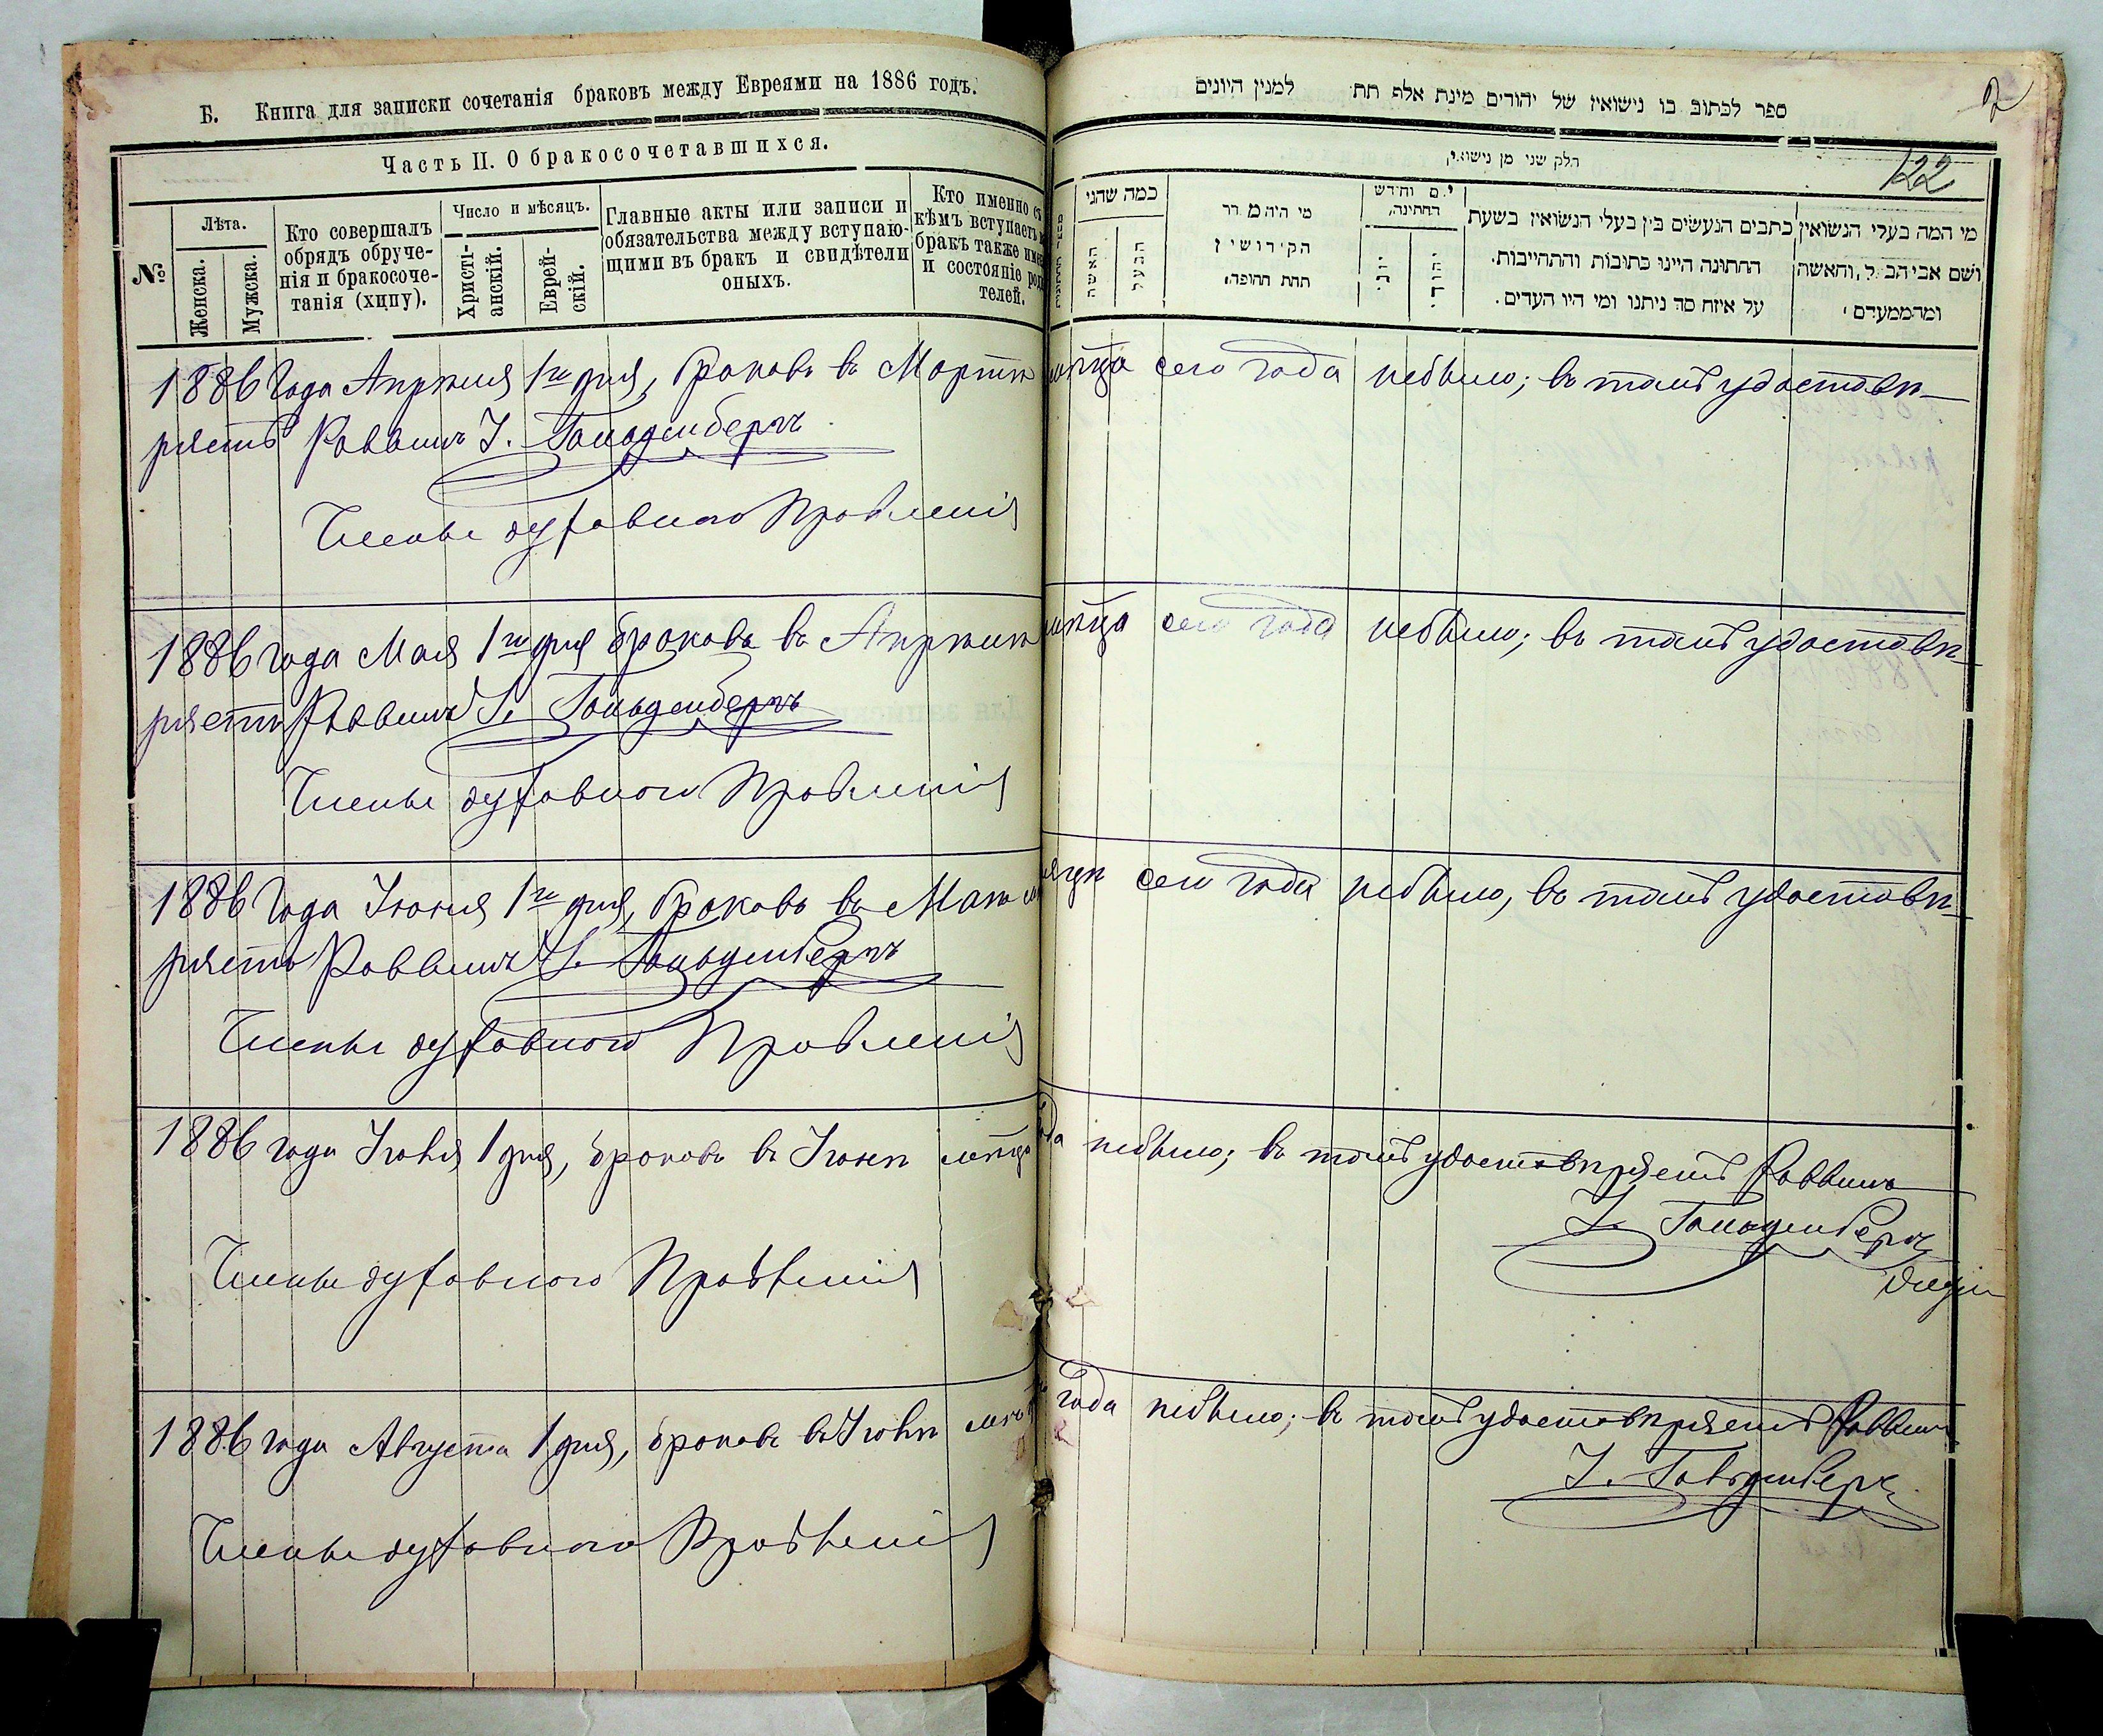 Б. Книга для записки сочетанія браковъ между Евреями на 1886 годъ.
Часть II. О бракосочетавшихся.
№
Лѣта.
Женска.
Мужска.
Кто совершалъ
обрядъ обруче-
нія и бракосоче-
танія (хупу).
Число и мѣсяцъ.
Христі-
анскій.
Еврей-
скій.
Главные акты или записи и
обязательства между вступаю-
щими въ бракъ и свидѣтели
оныхъ.
Кто именно съ
кѣмъ вступаетъ
бракъ также име
и состояніе род
телей.
ספר לכתוב בו נישואין של יהודים מינת אלף תת למנין היונים
חלק שני מן נישואין
122
כמה שהני
האשה
הבעל
מי היה מסדר
הקידושין
תחת החופה,
יום וחידש
החתינה,
יוני
יהודי
כתבים הנעשים בין בעלי הנשואין בשעת
החתונה היינו כתובות והתחייבות.
על איזה סך ניתנו ומי היו העדים.
מי המה בעלי הנשואין
ושם אביהב ל, והאשה
ומהממעדם
1886 Года Апрѣля 1го дня, браковъ въ Мартѣ мѣсца сего года небыло; въ томъ удостовѣ-
ряетъ Раввинъ І. Гольденбергъ
Члены духовного Правленія
1886 года Мая 1го дня браковъ въ Апрѣлѣ мѣсца сего года небыло; въ томъ удостовѣ-
ряетъ Раввинъ І. Гольденбергъ
Члены духовного Правленія
1886 Года Іюня 1го дня, браковъ въ Маѣ сего года небыло, въ томъ удостовѣ-
ряетъ Раввинъ І. Гольденбергъ
Члены духовного Правленія
1886 года Іюля 1 дня, браковъ въ Іюнѣ мѣсца года небыло; въ томъ удостовѣряетъ Раввинъ
І. Гольденбергъ
Члены духовного Правленія
1886 года Августа 1 дня, браковъ въ Іюлѣ года небыло; въ томъ удостовѣряетъ Раввинъ
І. Гольденбергъ
Члены духовного Правленія